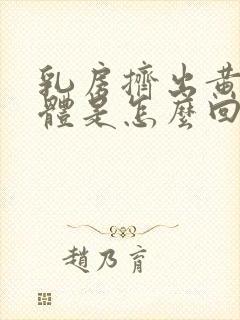 乳房擠出黃
體是怎麼回
趙乃育